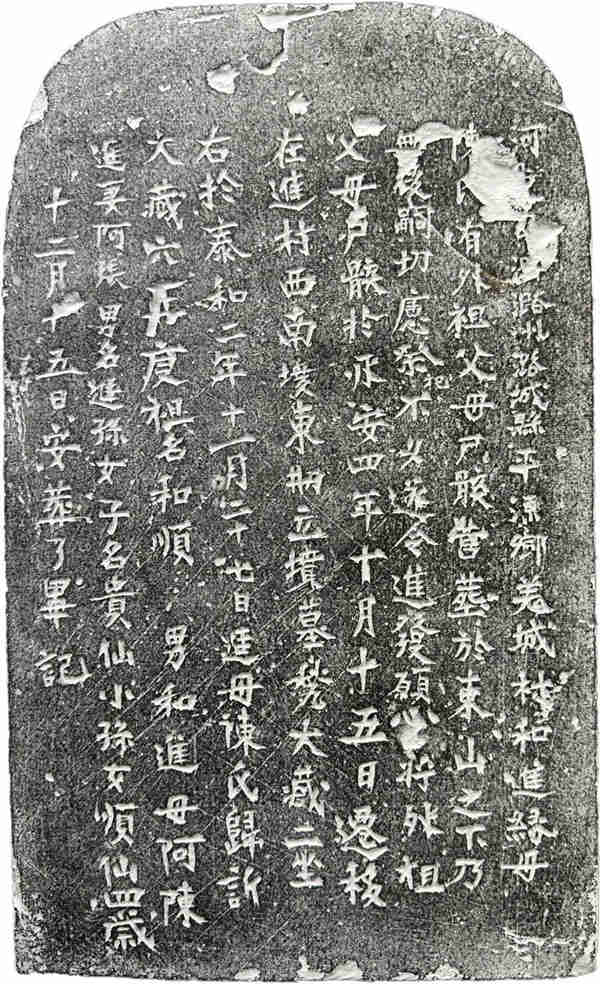 河潞州潞城縣平源鄉羌城村和進緣母
陳氏有外祖父母尸骸營葬於東山之下乃
無後嗣切慮祭祀不久遂令進發願將外祖
父母尸骸於承安四年十月十五日遷移
在進村西南墳東立墳墓甃大藏二坐
右於泰和二年十一月二十七日進母陳氏歸
大藏穴祖名和順男和進母阿陳
進妻阿張男名進孫女子名貴仙小孫女順仙四歲
十二月十五日安葬了畢記